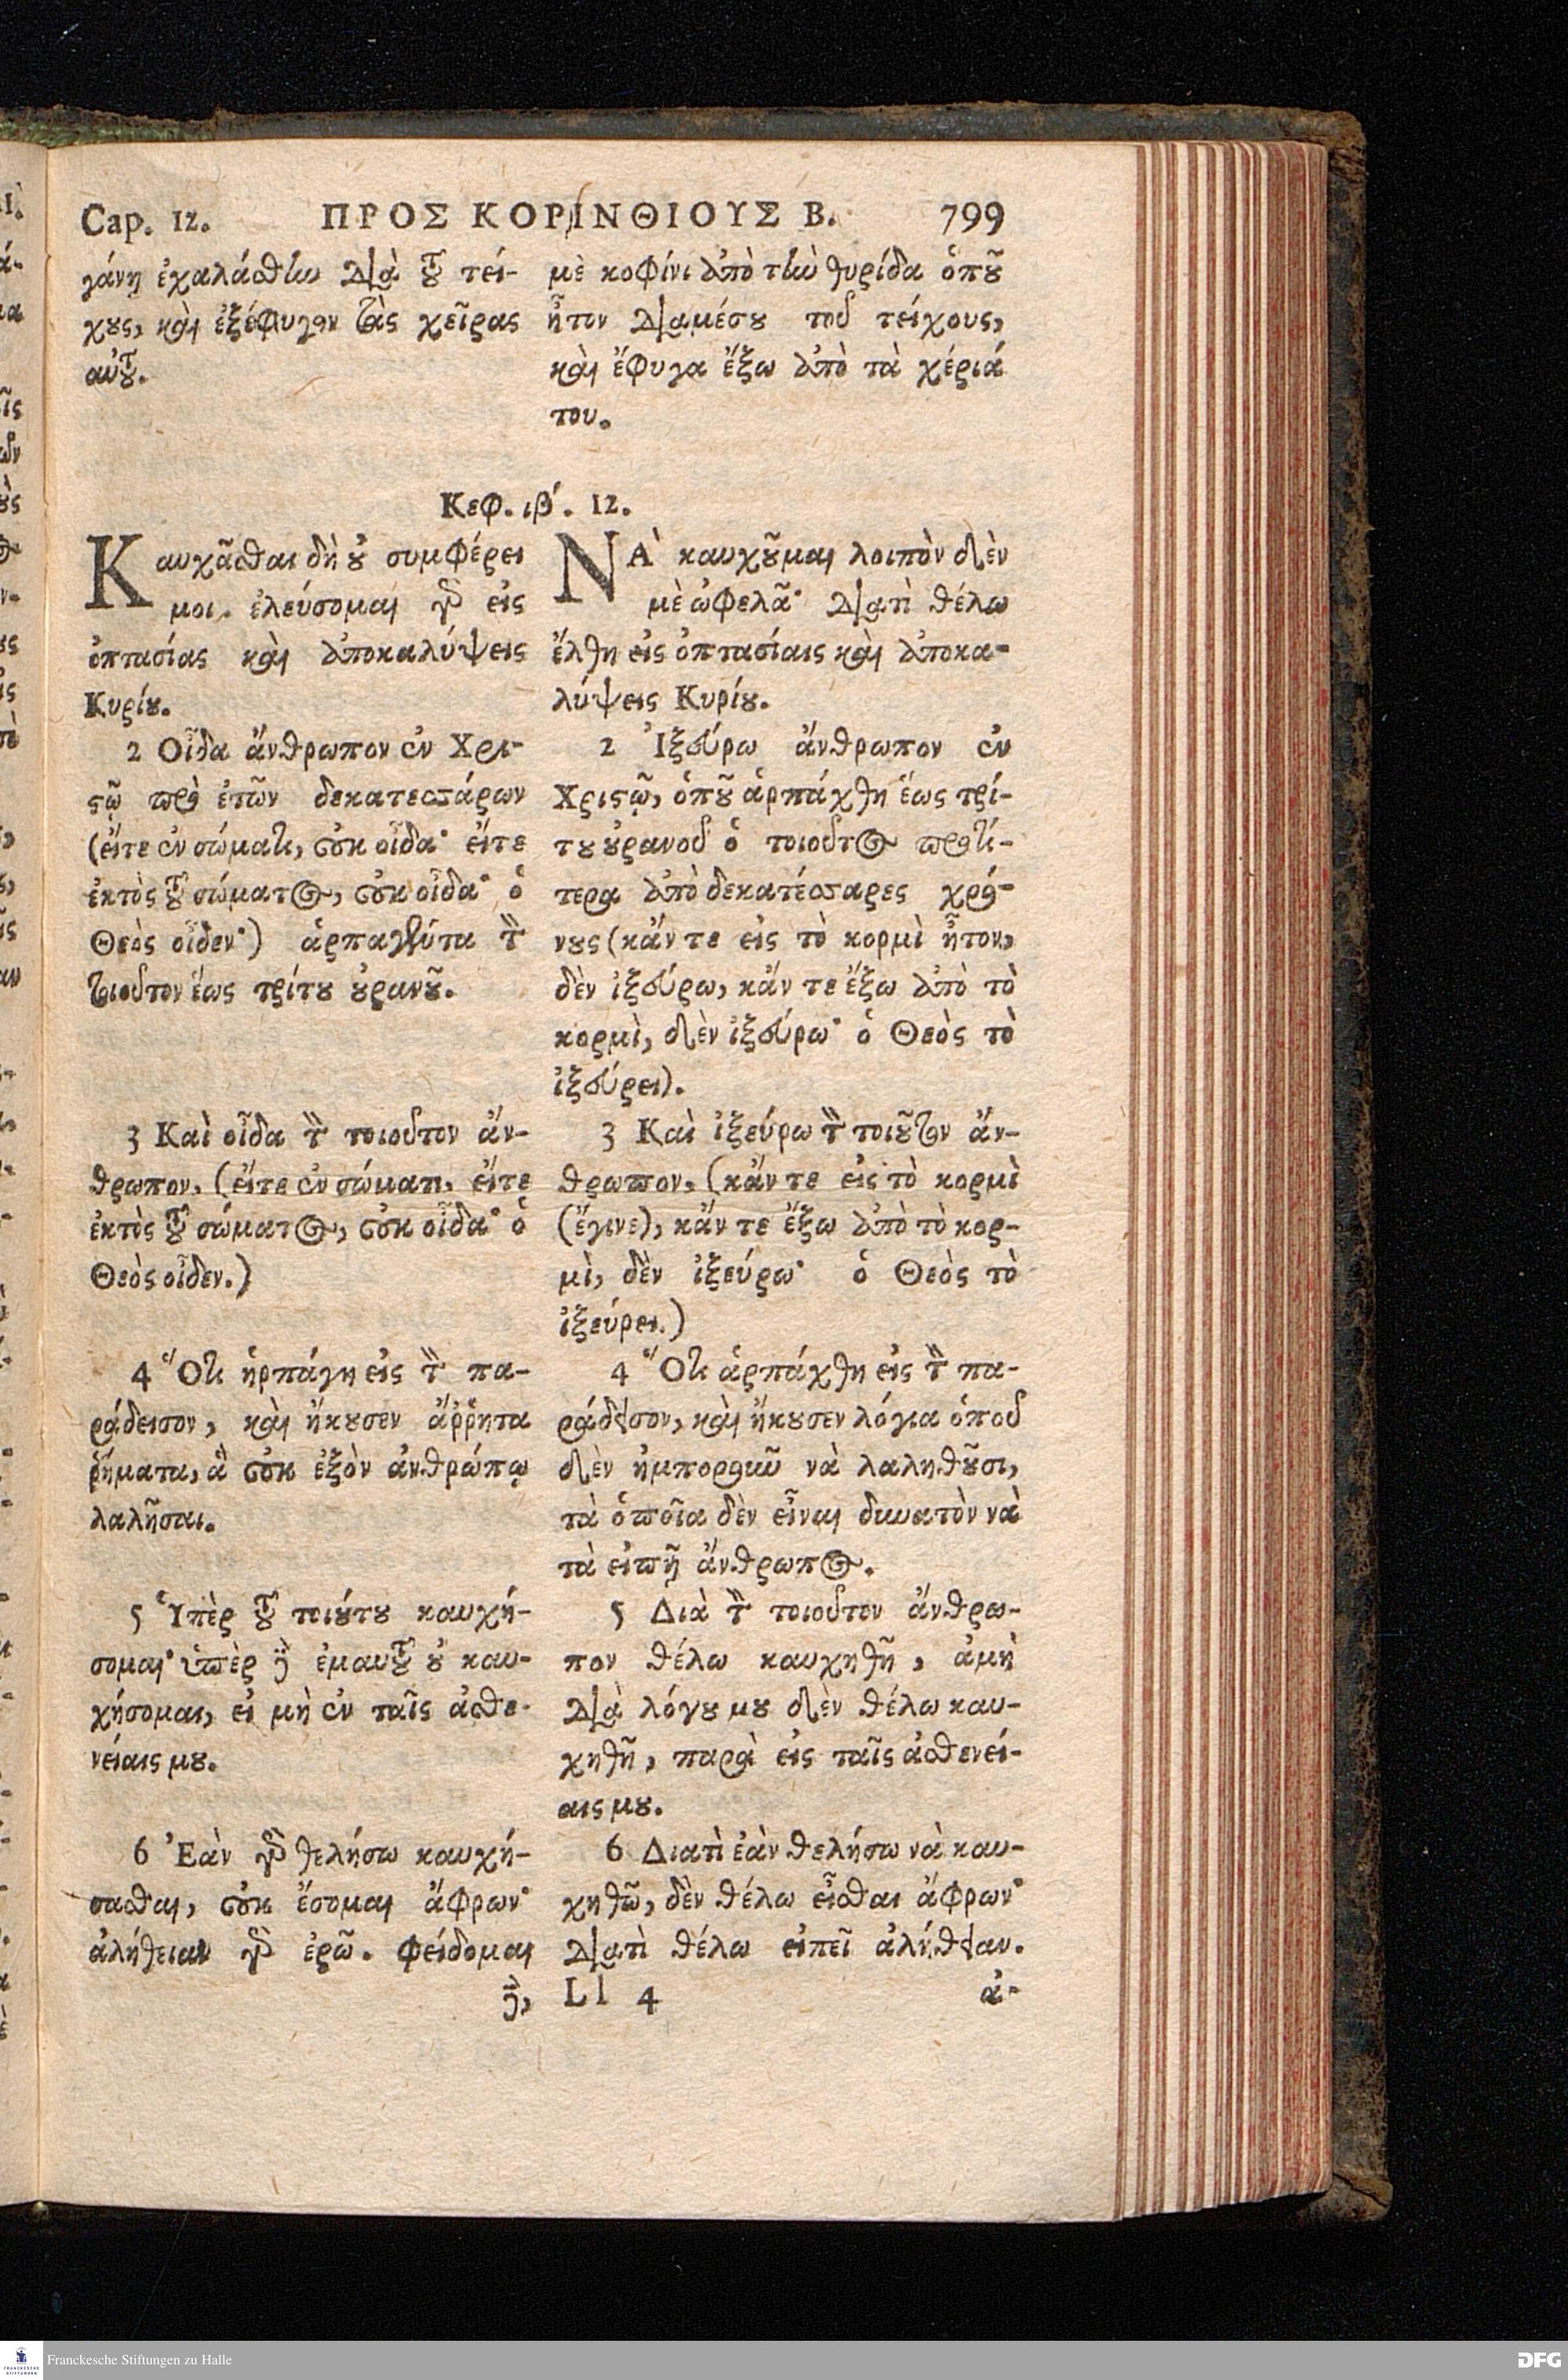 Cap. 12. ΠΡΟΣ ΚΟΡΙΝΘΙΟΥΣ Β. 799
γάνῃ ἐχαλάσθην διὰ τοῦ τεί-
χους, καὶ ἐξέφυγον τὰς χεῖρας
αὐτοῦ.
μὲ κοφίνι ἀπὸ τὴν θυρίδα ὁποῦ
ἦτον διαμέσου τοῦ τείχους,
καὶ ἔφυγα ἔξω ἀπὸ τὰ χέριά
του.
Κεφ. ιβ΄. 12.
Καυχᾶσθαι δὴ οὐ συμφέρει
μοι. ἐλεύσομαι γὰρ εἰς
ὀπτασίας καὶ ἀποκαλύψεις
Κυρίου.
2 Οἶδα ἄνθρωπον ἐν Χρι-
στῷ πρὸ ἐτῶν δεκατεσσάρων
(εἴτε ἐν σώματι, οὐκ οἶδα· εἴτε
ἐκτὸς τοῦ σώματος, οὐκ οἶδα· ὁ
Θεὸς οἶδεν·) ἁρπαγέντα τὸν
τοιοῦτον ἕως τρίτου οὐρανοῦ.
3 Καὶ οἶδα τὸν τοιοῦτον ἄν-
θρωπον, (εἴτε ἐν σώματι, εἴτε
ἐκτὸς τοῦ σώματος, οὐκ οἶδα· ὁ
Θεὸς οἶδεν.)
4 Ὅτι ἡρπάγη εἰς τὸν πα-
ράδεισον, καὶ ἤκουσεν ἄῤῥητα
ῥήματα, ἃ οὐκ ἐξὸν ἀνθρώπῳ
λαλῆσαι.
5 Ὑπὲρ τοῦ τοιούτου καυχή-
σομαι· ὑπὲρ δὲ ἐμαυτοῦ οὐ καυ-
χήσομαι, εἰ μὴ ἐν ταῖς ἀσθε-
νείαις μου.
6 Ἐὰν γὰρ θελήσω καυχή-
σασθαι, οὐκ ἔσομαι ἄφρων·
ἀλήθειαν γὰρ ἐρῶ. φείδομαι
δὲ,
ΝᾺ καυχοῦμαι λοιπὸν δὲν
μὲ ὠφελᾶ· διατὶ θέλω
ἔλθη εἰς ὀπτασίαις καὶ ἀποκα-
λύψεις Κυρίου.
2 Ἰξεύρω ἄνθρωπον ἐν
Χριστῷ, ὁποῦ ἁρπάχθη ἕως τρί-
του οὐρανοῦ ὁ τοιοῦτος προτί-
τερα ἀπὸ δεκατέσσαρες χρό-
νους (κἄν τε εἰς τὸ κορμὶ ἦτον,
δὲν ἰξεύρω, κἄν τε ἔξω ἀπὸ τὸ
κορμὶ, δὲν ἰξεύρω· ὁ Θεὸς τὸ
ἰξεύρει).
3 Καὶ ἰξεύρω τὸν τοιοῦτον ἄν-
θρωπον, (κἄν τε εἰς τὸ κορμὶ
(ἔγινε), κἄν τε ἔξω ἀπὸ τὸ κορ-
μὶ, δὲν ἰξεύρω· ὁ Θεὸς τὸ
ἰξεύρει.)
4 Ὅτι ἁρπάχθη εἰς τὸν πα-
ράδεισον, καὶ ἤκουσεν λόγια ὁποῦ
δὲν ἠμποροῦν νὰ λαληθοῦσι,
τὰ ὁποῖα δὲν εἶναι δυνατὸν νὰ
τὰ εἰπῇ ἄνθρωπος.
5 Διὰ τὸν τοιοῦτον ἄνθρω-
πον θέλω καυχηθῆ, ἀμὴ
διὰ λόγου μου δὲν θέλω καυ-
χηθῆ, παρὰ εἰς ταῖς ἀσθενεί-
αις μου.
6 Διατὶ ἐὰν θελήσω νὰ καυ-
χηθῶ, δὲν θέλω εἶσθαι ἄφρων·
διατὶ θέλω εἰπεῖ ἀλήθειαν.
Ll 4 ἀ-
Franckesche Stiftungen zu Halle
FRANCKESCHE STIFTUNGEN
DFG